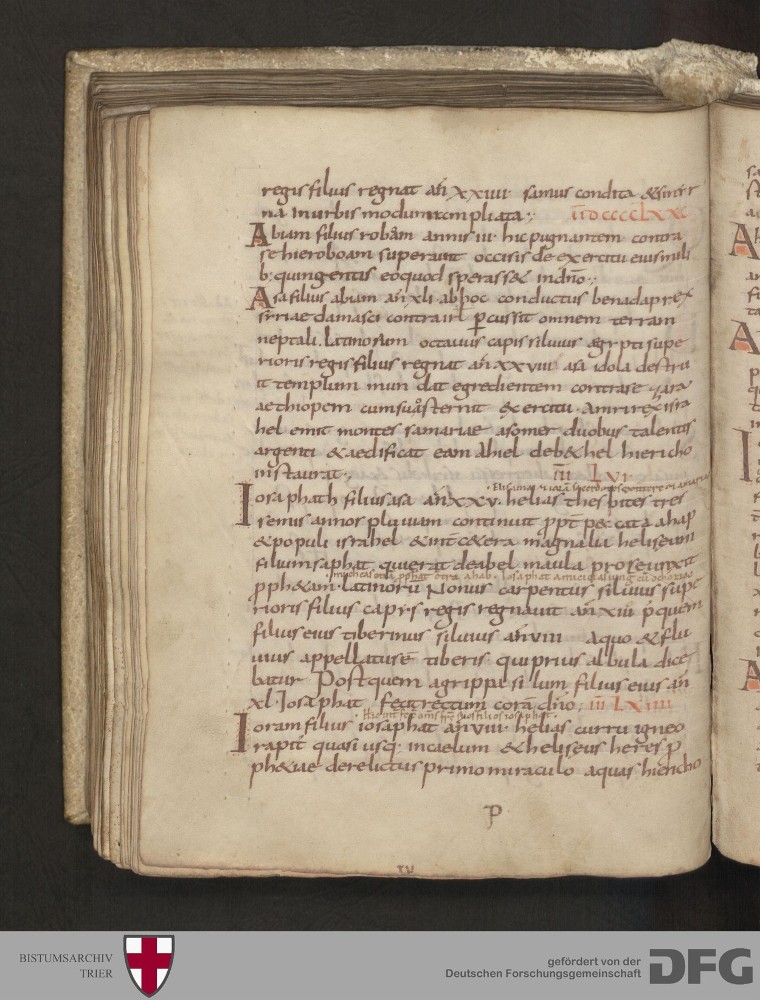 regis filius regnat añ xxiiii· samus condita & smir
na in urbis modum ampliata·, īīdccccLxxx
Abiam filius roboam annis iii· hic pugnantem contra
se hieroboam superavit occisis de exercitu eius mili
b; quingentis eo quod sperass& in dn̄o·,
Asa filius abiam añ xli· ab hoc conductus benadap rex
syriae damasci contra irl p̄cussit omnem terram
neptali. Latinorum octavus capis silvius aegypti supe
rioris regis filius regnat añ xxviii· asa idola destru
it templum mundat egredientem contra se zara
aethiopem cum suo sternit exercitu· amri rex isra
hel emit montes samariae a somer duobus talentis
argenti & aedificat eam ahiel de b&hel hiericho
instaurat·, īīī Lvi·
Iosaphath filius asa añ xxv· helias thesbites tres
semis annos pluviam continuit ꝓpt̄ peccata ahap
& populi israhel & int̄ cetera magnalia heliseum
filium saphat qui erat de abel maula pro se unxit
micheas
ꝓph&am· Latinorum Nonus carpentus silvius supe
rioris filius capys regis regnavit añ xiii p̄ quem
filius eius tiberinus silvius añ viii a quo & flu
vius appellatus ē tiberis qui prius albula dice
batur Post quem agrippe silvii filius eius añ
xl· Iosaphat fecit rectum corā dn̄o· īīī Lxiiii
filios iosaphat·
Ioram filius iosaphat añ viii· helias curru igneo
rapit quasi usq; in caelum & heliseus heres ꝓ
ph&iae derelictus primo miraculo aquas hiericho
P
IV
BISTUMSARCHIV
TRIER
gefördert von der
Deutschen Forschungsgemeinschaft
DFG